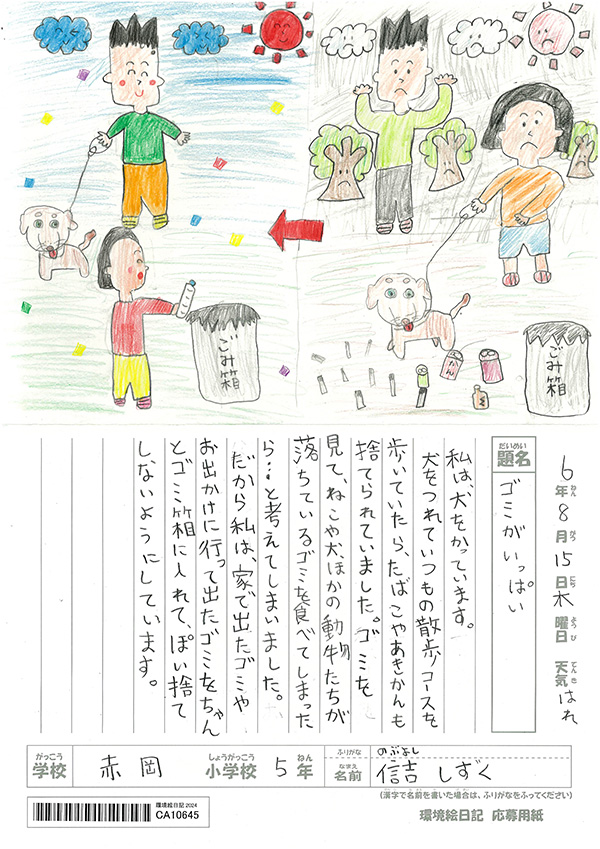 ごみ箱
かん
ごみ箱
6年8月15日木曜日 天気はれ
ねん がつ にち ようび てんき
だいめい
題名
ゴミがいっぱい
私は、犬をかっています。
犬をつれていつもの散歩コースを
歩いていたら、たばこやあきかんも
捨てられていました。ゴミを
見て、ねこや犬、ほかの動物たちが
落ちているゴミを食べてしまった
ら…と考えてしまいました。
だから私は、家で出たゴミや
お出かけに行って出たゴミをちゃん
とゴミ箱に入れて、ぽい捨て
しないようにしています。
がっこう しょうがっこう ねん ふりがな のぶよし
学校 赤岡 小学校 5年 なまえ 名前 信吉 しずく
(漢字で名前を書いた場合は、ふりがなをふってください)
環境絵日記2024
CA10645
環境絵日記 応募用紙